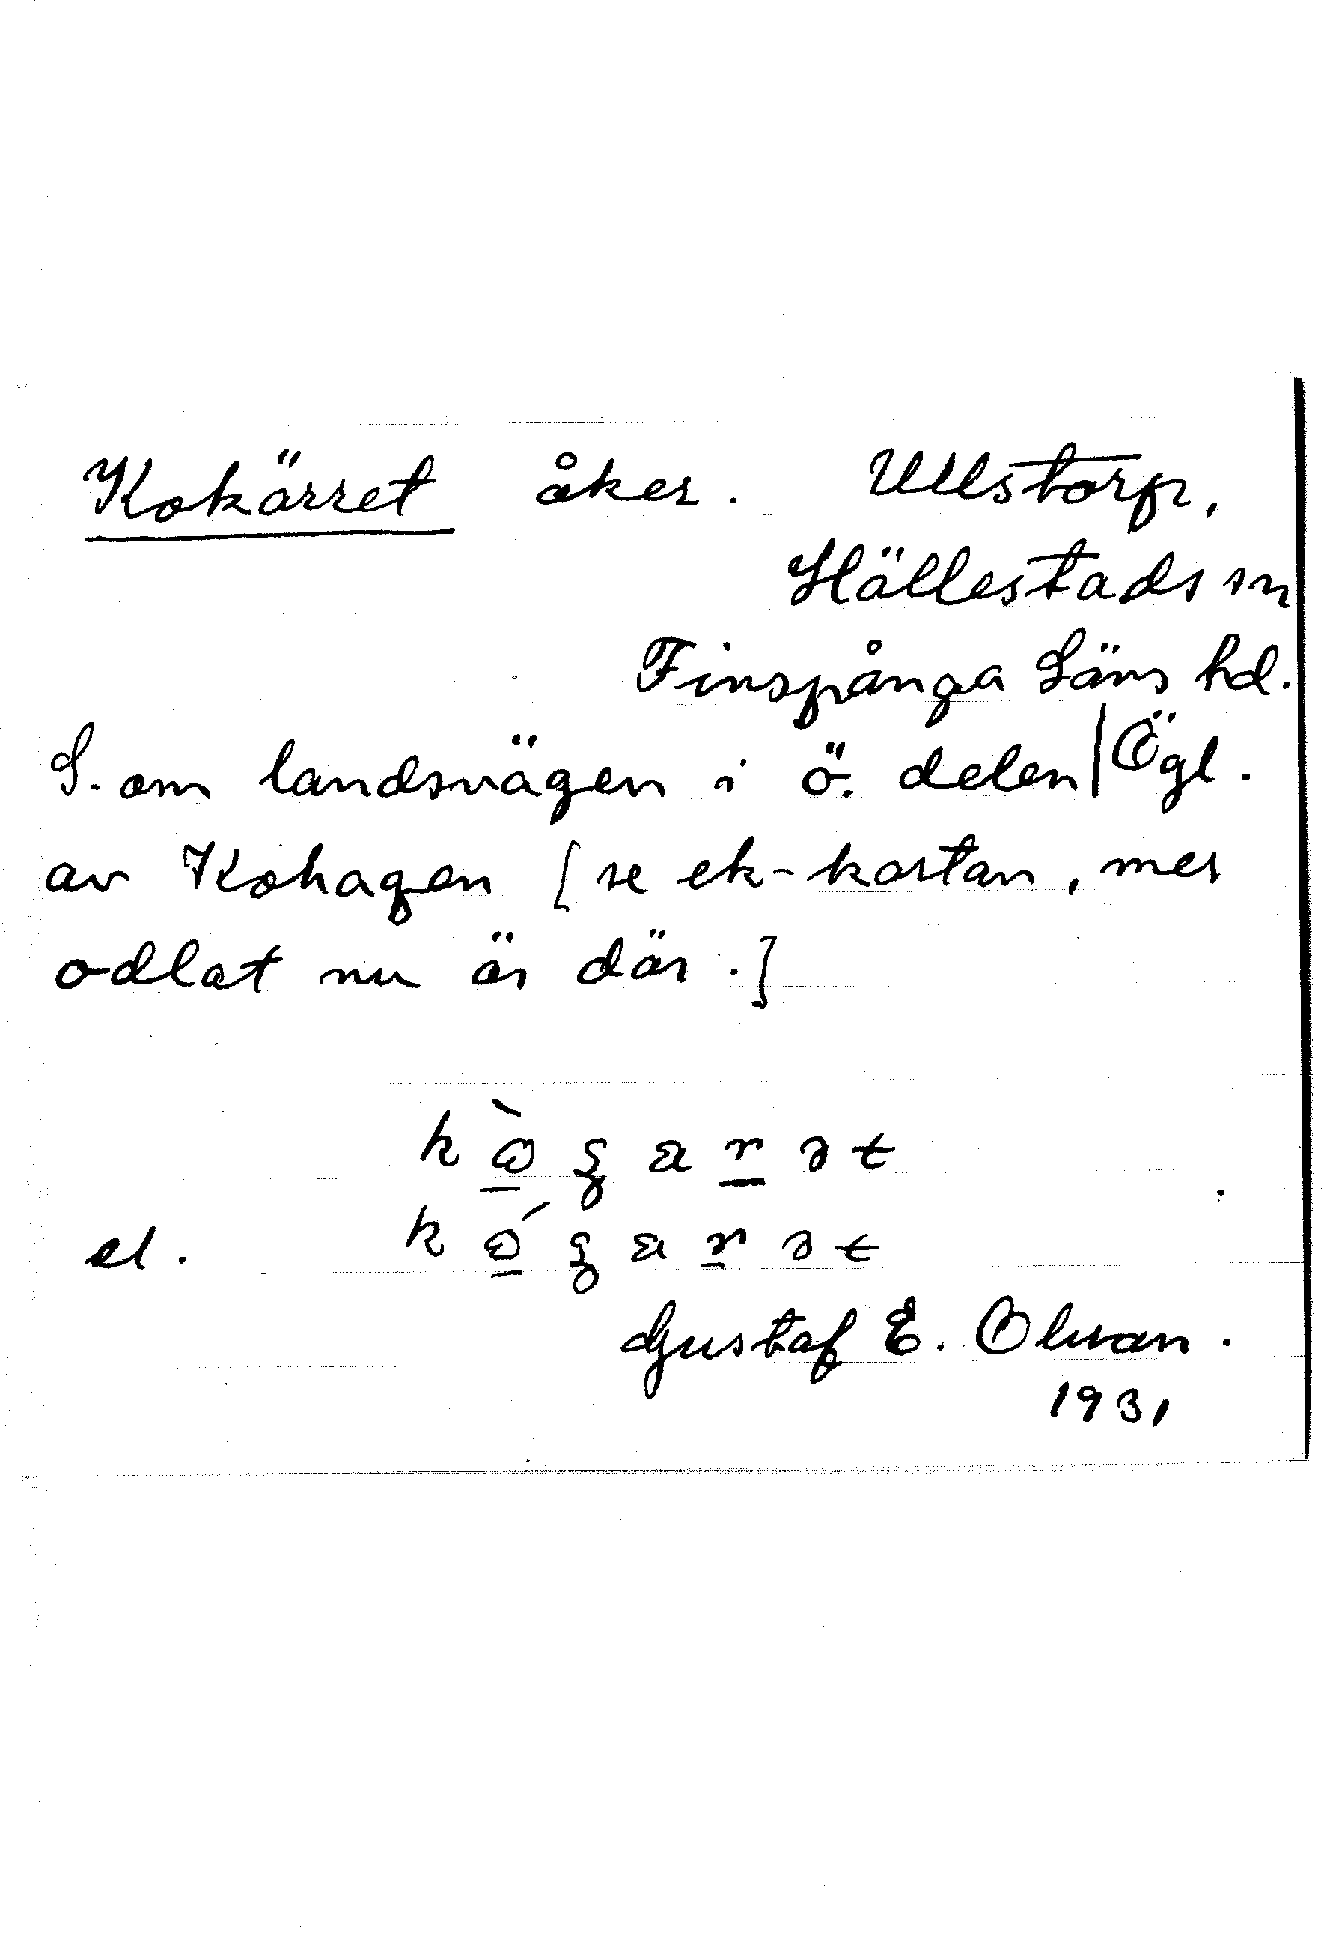 Kokärret åker. Ullstorp,
Hällestads sn
Finspånga Läns hd.
S. om landsvägen i ö. delen | Ögl.
av Kohagen [se ek-kartan, mer
odlat nu är där.]
el.
Gustaf E. Olsson.
1931